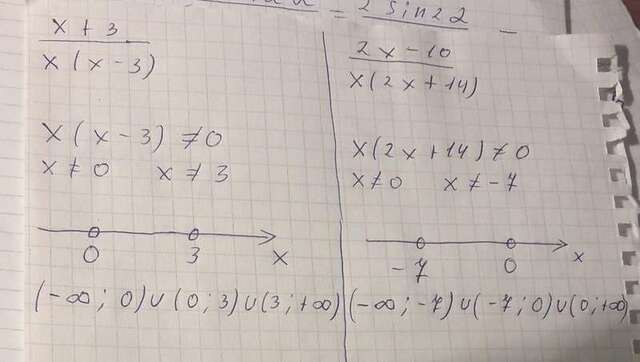 = 2 sin2α
x + 3
x(x - 3)
x(x - 3) ≠ 0
x ≠ 0 x ≠ 3
0 3 x
(-∞; 0)∪(0; 3)∪(3; +∞)
2x - 10
x(2x + 14)
x(2x + 14) ≠ 0
x ≠ 0 x ≠ -7
-7 0 x
(-∞; -7)∪(-7; 0)∪(0; +∞)